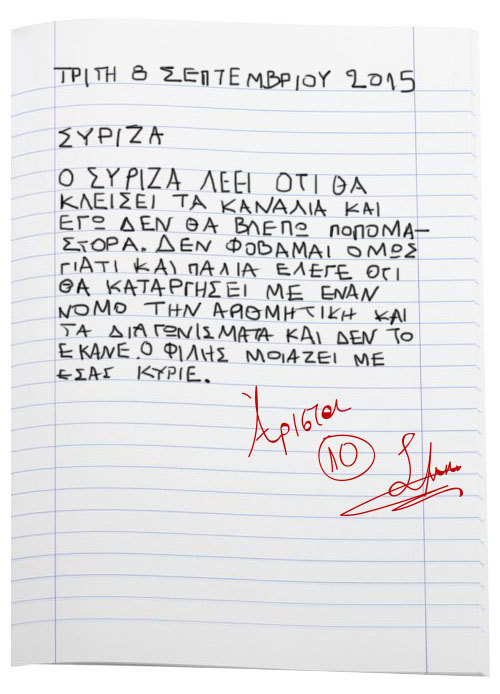 ΤΡΙΤΗ 8 ΣΕΠΤΕΜΒΡΙΟΥ 2015
ΣΥΡΙΖΑ
Ο ΣΥΡΙΖΑ ΛΕΕΙ ΟΤΙ ΘΑ
ΚΛΕΙΣΕΙ ΤΑ ΚΑΝΑΛΙΑ ΚΑΙ
ΕΓΩ ΔΕΝ ΘΑ ΒΛΕΠΩ ΠΟΠΟΜΑ-
ΣΤΟΡΑ. ΔΕΝ ΦΟΒΑΜΑΙ ΟΜΩΣ
ΓΙΑΤΙ ΚΑΙ ΠΑΛΙΑ ΕΛΕΓΕ ΟΤΙ
ΘΑ ΚΑΤΑΡΓΗΣΕΙ ΜΕ ΕΝΑΝ
ΝΟΜΟ ΤΗΝ ΑΡΘΜΗΤΙΚΗ ΚΑΙ
ΤΑ ΔΙΑΓΩΝΙΣΜΑΤΑ ΚΑΙ ΔΕΝ ΤΟ
ΕΚΑΝΕ. Ο ΦΙΛΗΣ ΜΟΙΑΖΕΙ ΜΕ
ΕΣΑΣ ΚΥΡΙΕ.
Άριστα
10